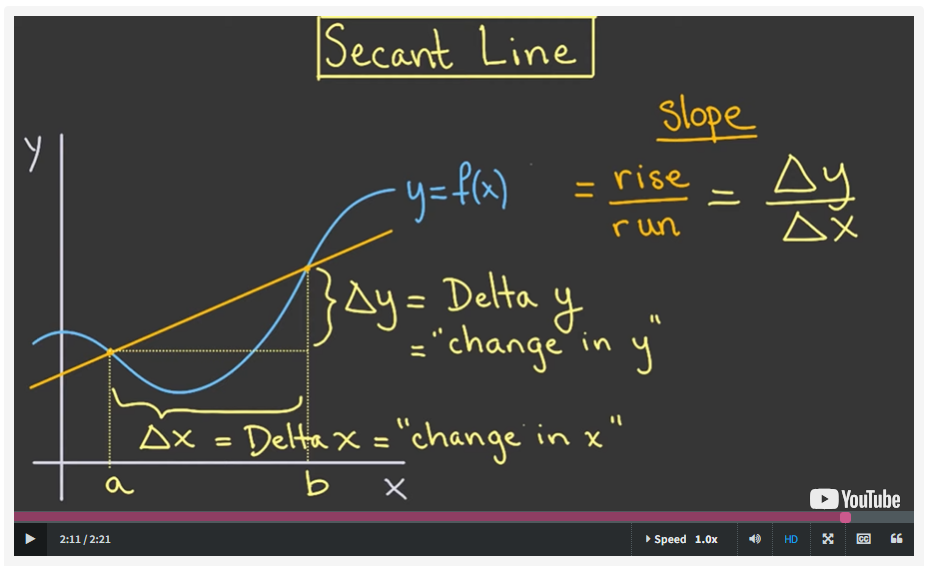 Secant Line
Slope
y
y=f(x)
= rise/run = Δy/Δx
Δy = Delta y
= "change in y"
Δx = Delta x = "change in x"
a b x
YouTube
2:11 / 2:21
Speed 1.0x
HD
CC